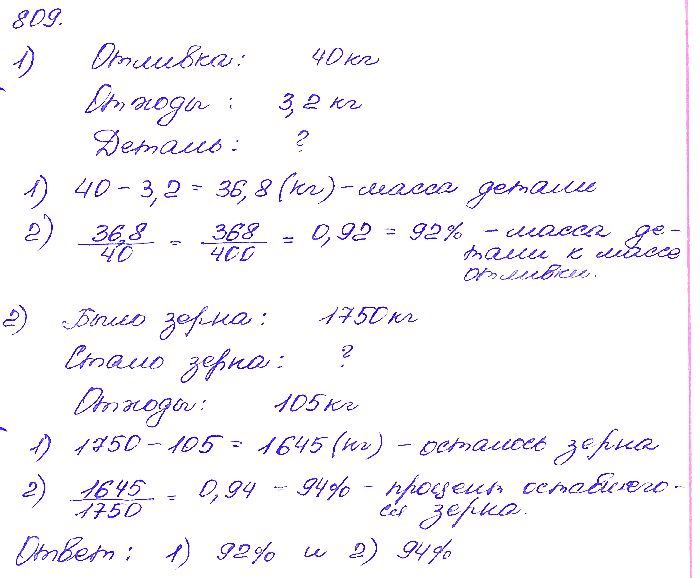 809.
1) Отливка: 40 кг
Отходы: 3,2 кг
Деталь: ?
1) 40 - 3,2 = 36,8 (кг) - масса детали
2) 36,8/40 = 368/400 = 0,92 = 92% - масса де-
тали к массе
отливки.
2) Было зерна: 1750 кг
Стало зерна: ?
Отходы: 105 кг
1) 1750 - 105 = 1645 (кг) - осталось зерна
2) 1645/1750 = 0,94 - 94% - процент оставшего-
ся зерна.
Ответ: 1) 92% и 2) 94%